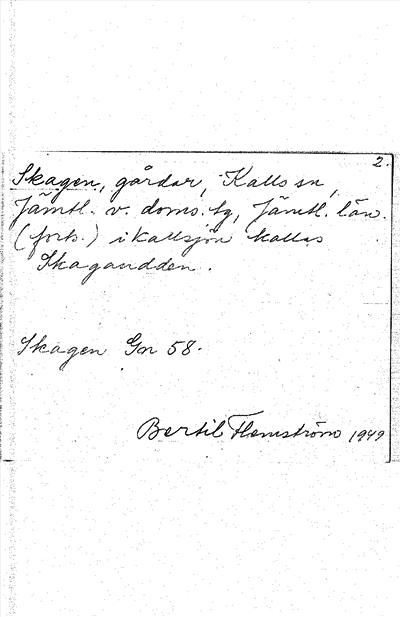 2.
Skagen, gårdar, Kalls sn,
Jämtl. v. doms. tg, Jämtl. län.
(forts.) i Kallsjön kallas
Skagaudden.
Skagen Gn 58.
Bertil Flemström 1949